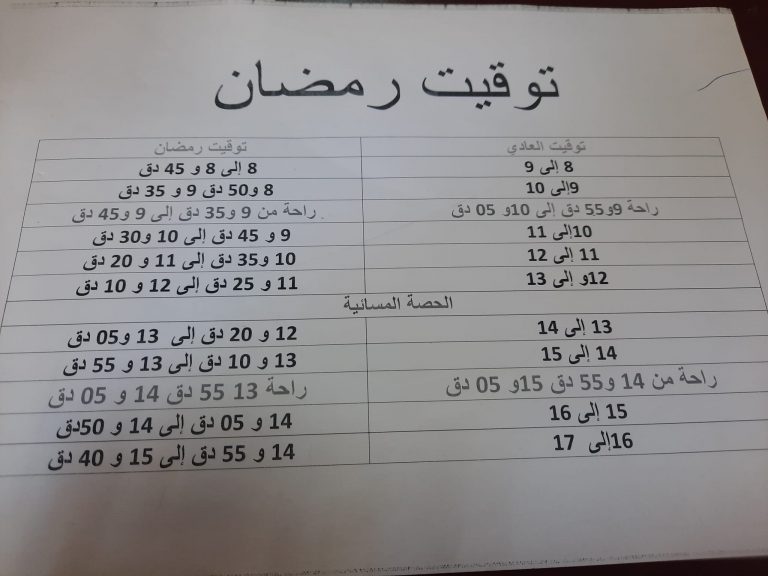 توقيت رمضان
توقيت العادي توقيت رمضان
8 إلى 9 8 إلى 8 و 45 دق
9إلى 10 8 و50 دق 9 و 35 دق
راحة 9و55 دق إلى 10و 05 دق راحة من 9 و35 دق إلى 9 و45 دق
10إلى 11 9 و 45 دق إلى 10 و30 دق
11 إلى 12 10 و35 دق إلى 11 و 20 دق
12و إلى 13 11 و 25 دق إلى 12 و 10 دق
الحصة المسائية
13 إلى 14 12 و 20 دق إلى 13 و05 دق
14 إلى 15 13 و 10 دق إلى 13 و 55 دق
راحة من 14 و55 دق 15و 05 دق راحة 13 55 دق 14 و 05 دق
15 إلى 16 14 و 05 دق إلى 14 و 50دق
16إلى 17 14 و 55 دق إلى 15 و 40 دق